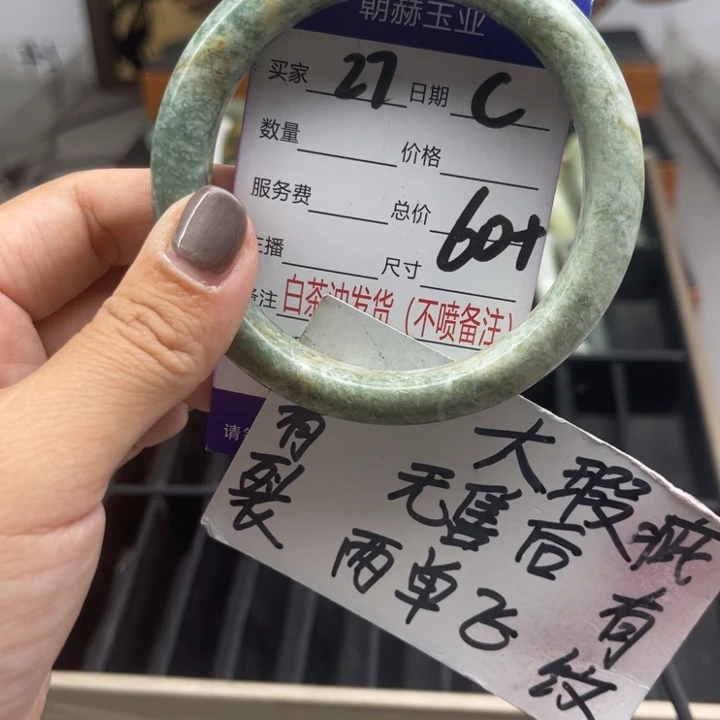 朝赫玉业
买家 27 日期 C
数量 价格
服务费 总价 60+
主播 尺寸
备注 白茶油发货（不喷备注）
有裂
大瑕疵有纹
无售后
两单飞